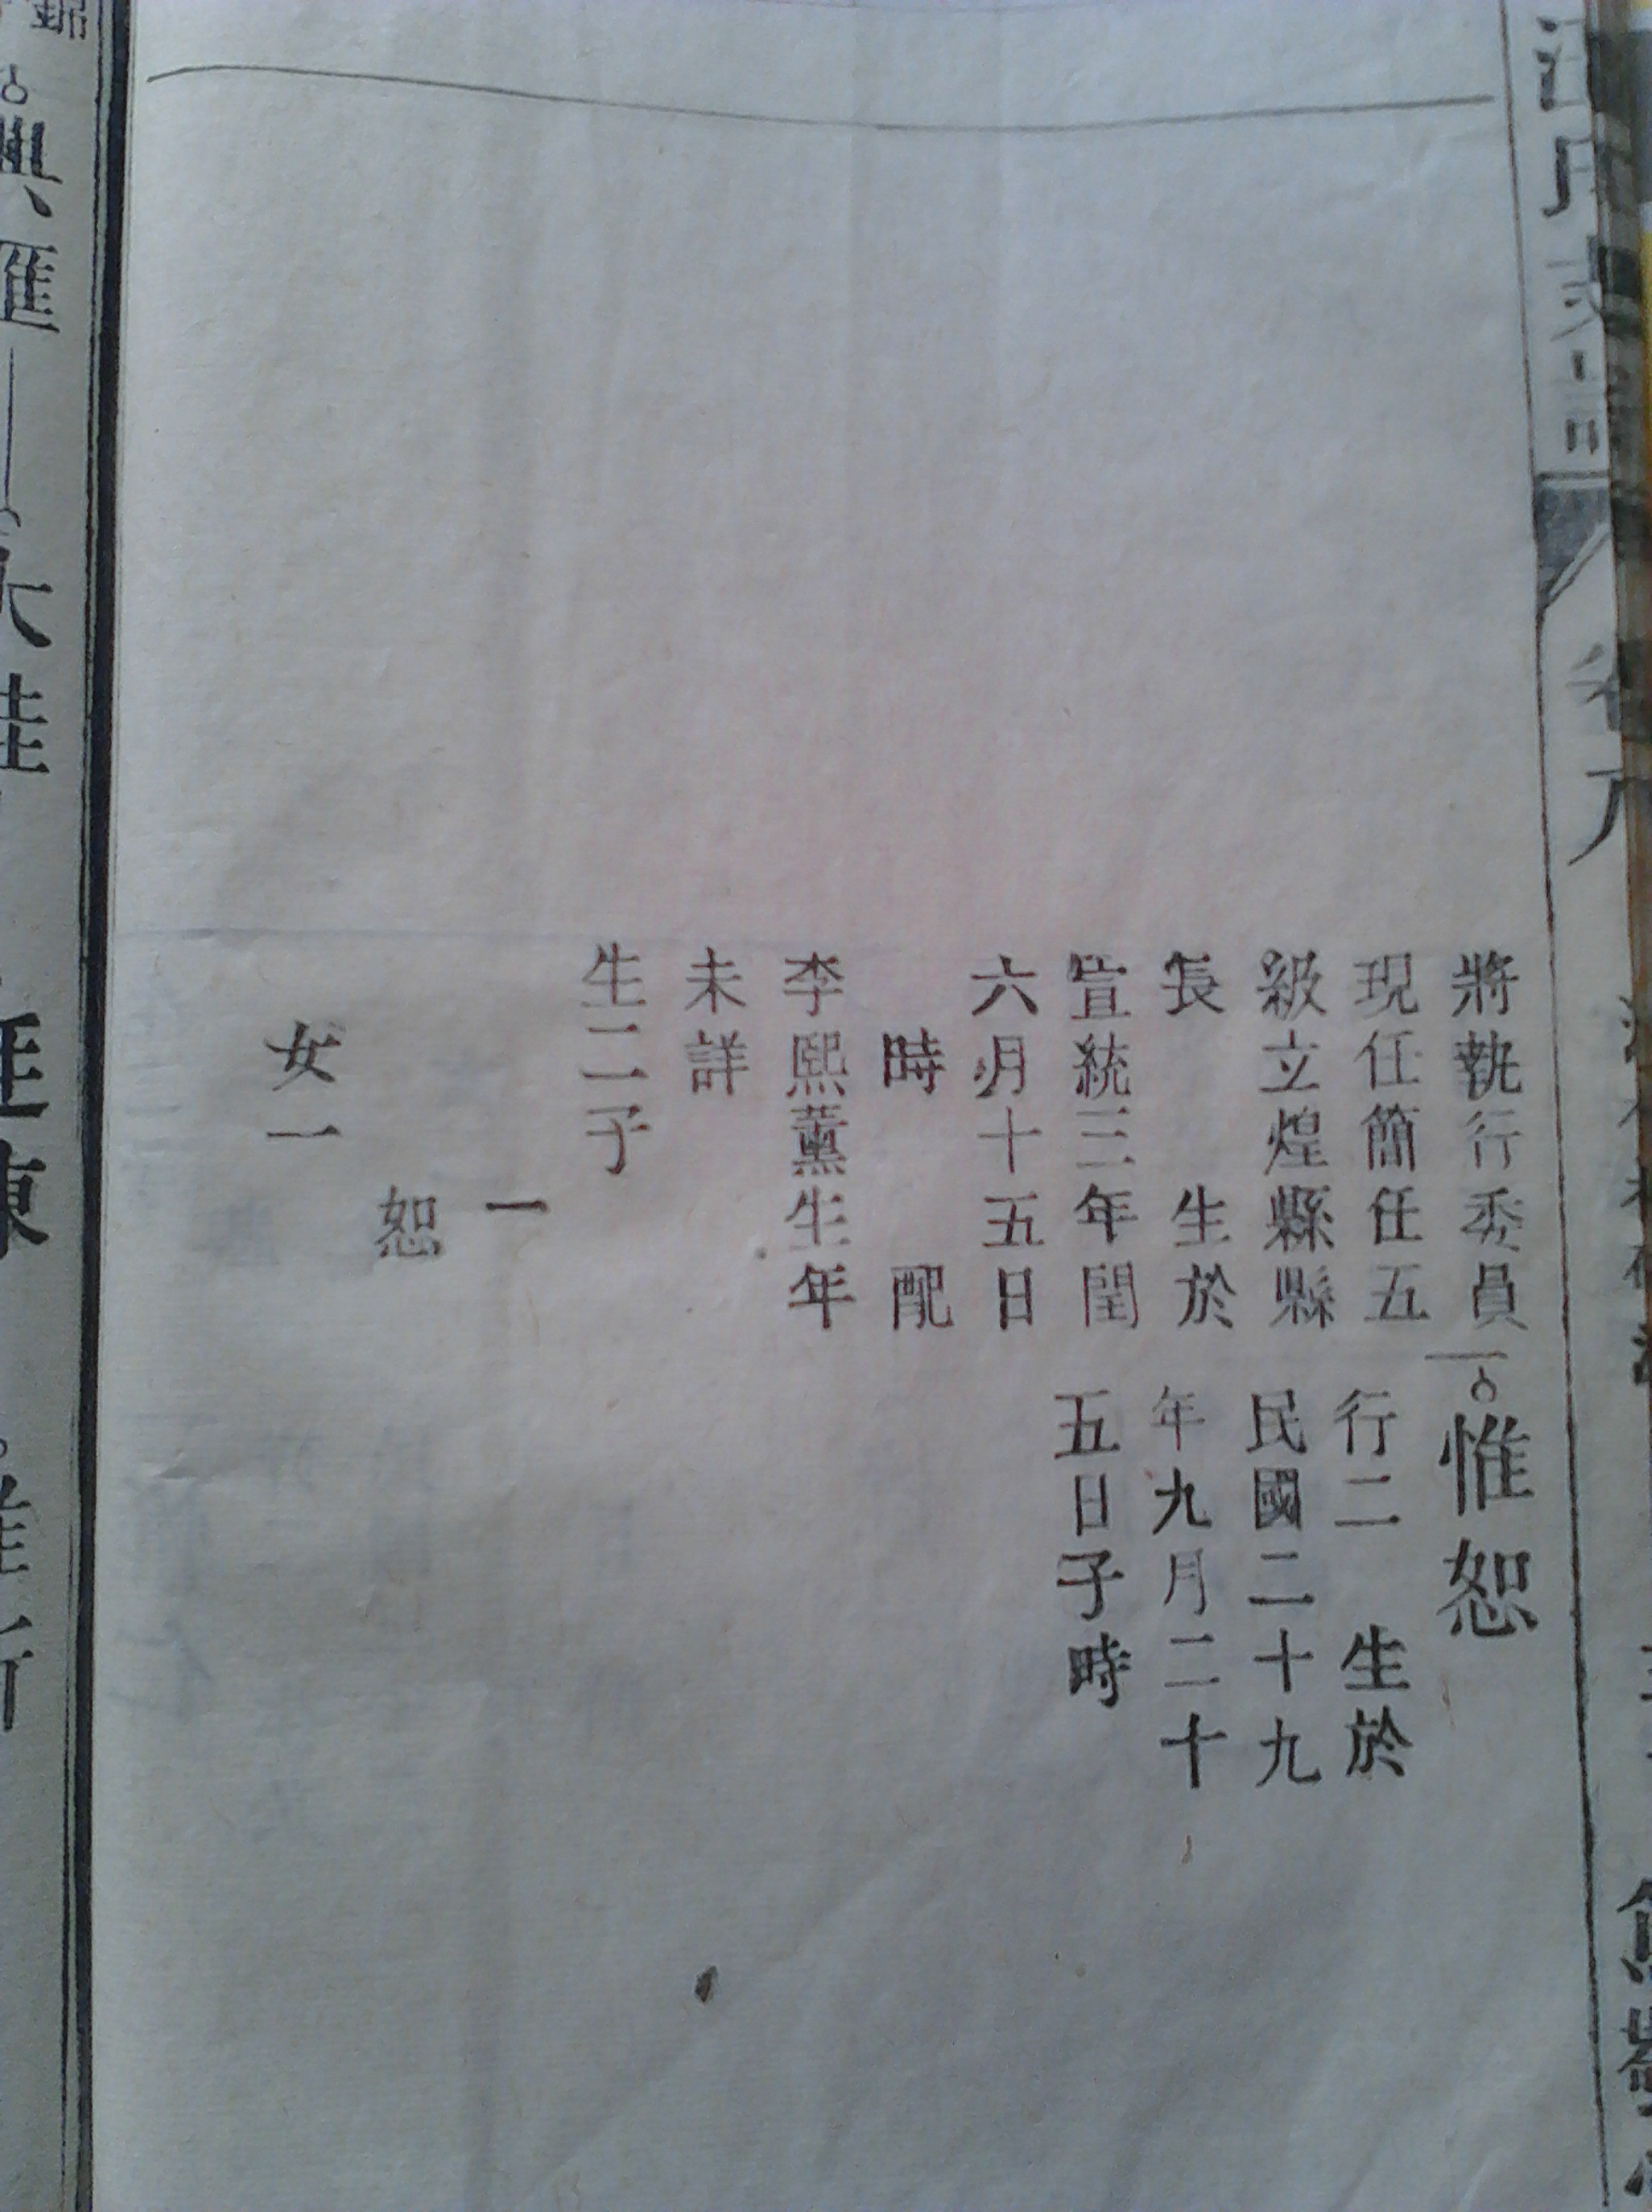 將執行委員
現任簡任五
級立煌縣縣
長 生於
宣統三年閏
六月十五日
時 配
李熙薰生年
未詳
生二子
一
恕
女一
惟恕
行二 生於
民國二十九
年九月二十
五日子時